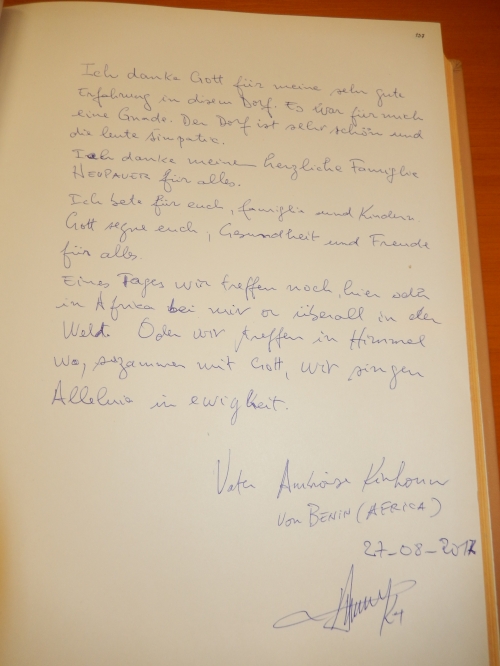 Ich danke Gott für meine sehr gute
Erfahrung in disem Dorf. Es war für mich
eine Gnade. Der Dorf ist sehr schön und
die leute simpatic.
Ich danke meinem herzliche Famiglie
HEUPAUER für alles.
Ich bete für euch, famiglie und Kindern
Gott segne euch, Gesundheit und Freude
für alles.
Eines Tages wir treffen noch, hier oder
in Afrika bei mir or überall in der
Welt. Oder wir treffen in Himmel
wo, sozammen mit Gott, wir singen
Alleluia in ewigkeit.
Vater Ambroise Kinhoun
von BENIN (AFRICA)
27-08-2017